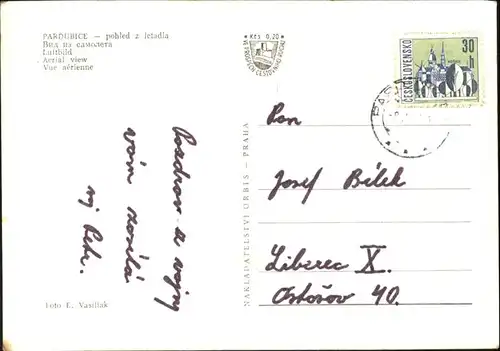 PARDUBICE — pohled z letadla
Вид из самолета
Luftbild
Aerial view
Vue aérienne
Kčs 0,20
ČESKOSLOVENSKO
30 h
Pan
Josef Bílek
Liberec X.
Ostašov 40.
Pozdrav z vojny
vám zasílá
Petr.
NAKLADATELSTVÍ ORBIS - PRAHA
Foto E. Vasiliak